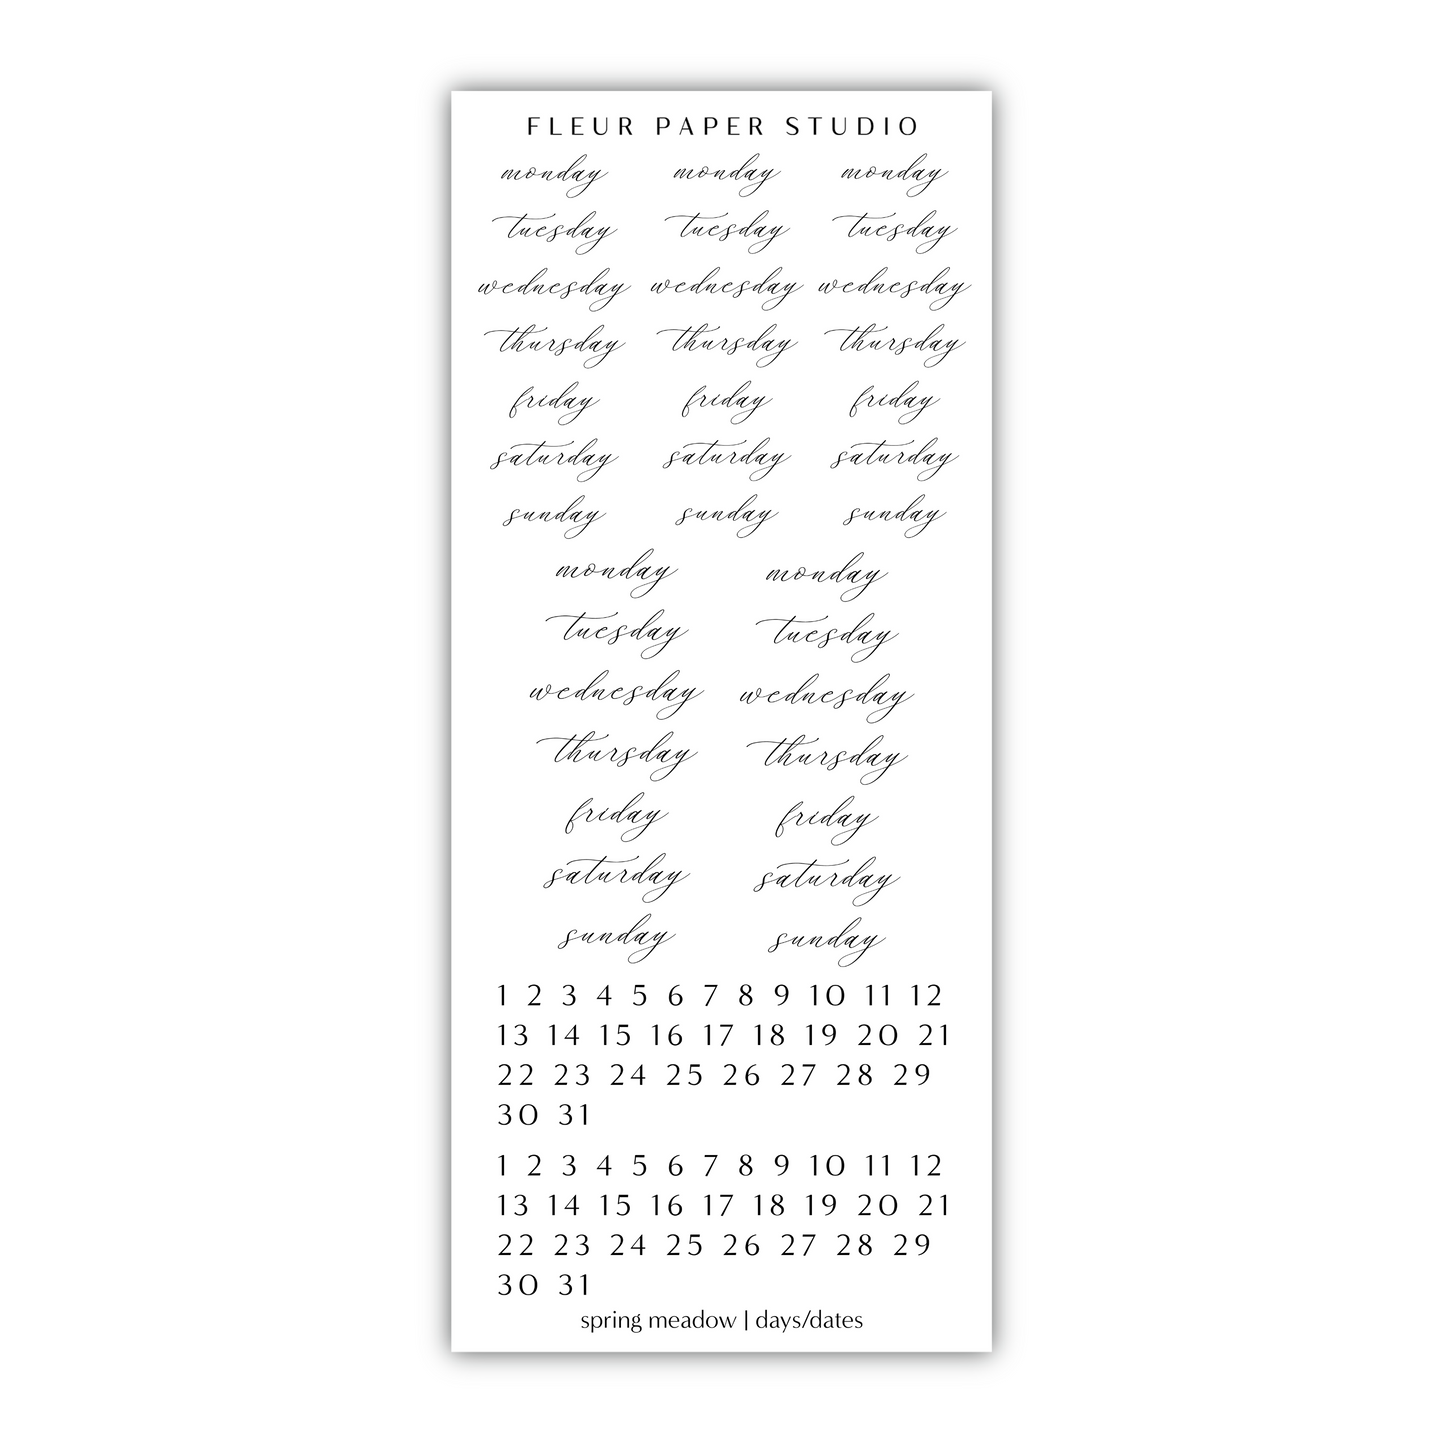 FLEUR PAPER STUDIO
monday monday monday
tuesday tuesday tuesday
wednesday wednesday wednesday
thursday thursday thursday
friday friday friday
saturday saturday saturday
sunday sunday sunday
monday monday
tuesday tuesday
wednesday wednesday
thursday thursday
friday friday
saturday saturday
sunday sunday
1 2 3 4 5 6 7 8 9 10 11 12
13 14 15 16 17 18 19 20 21
22 23 24 25 26 27 28 29
30 31
1 2 3 4 5 6 7 8 9 10 11 12
13 14 15 16 17 18 19 20 21
22 23 24 25 26 27 28 29
30 31
spring meadow | days/dates